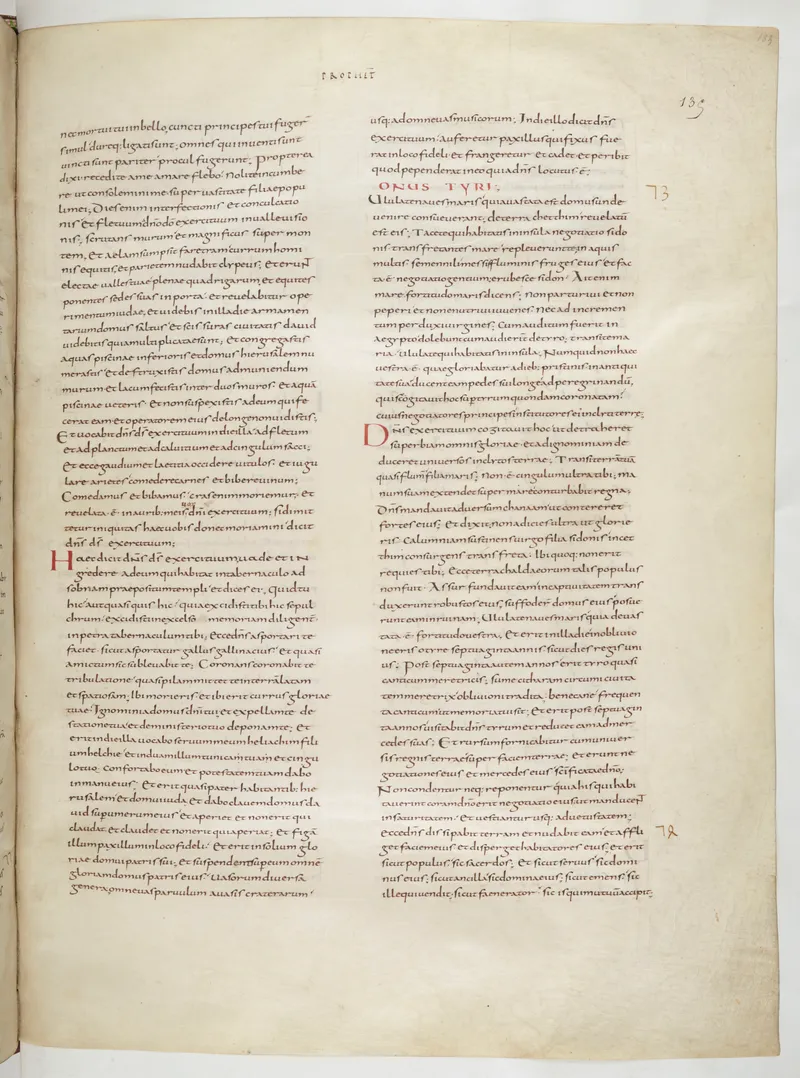 PROPHET
139
nec mortui tui in bello, cuncti principes tui fuger̄
simul dureq; ligati sunt, omnes qui inventi sunt
uincti sunt pariter procul fugerunt; Propterea
dixi recedite a me amare flebo. Nolite incumbe
re ut consolemini me super uastitate filiae popu
li mei; Dies enim interfectionis et conculcatio
nis et fletuum dn̄o dō exercituum in ualle uisio
nis; scrutans murum et magnificus super mon
tem, et aelam sumpsit faretram currum homi
nis equitis, et parietem nudabit clypeus; Et erunt
electae ualles tuae plenae quadrigarum, et equites
ponent sedes suas in porta. et reuelabitur ope
rimentum iudae, et uidebis in illa die armamen
tarium domus saltus et scissuras ciuitatis dauid
uidebitis quia multiplicatae sunt; et congregastis
aquas piscinae inferioris et domus hierusalem nu
merastis et destruxistis domus ad muniendum
murum et lacum fecistis inter duos muros et aquā
piscinae ueteris et non suspexistis ad eum qui fe
cerat eam et operatorem eius de longe non uidistis;
Et uocabit dn̄s ds̄ exercituum in die illa ad fletum
et ad planctum et ad caluitium et ad cingulum sacci;
Et ecce gaudium et laetitia occidere uitulos et iugu
lare arietes comedere carnes et bibere uinum;
Comedamus et bibamus. cras enim moriemur; Et
reuelata ē in aurib; meis uox dn̄i exercituum; si dimit
tetur iniquitas haec uobis donec moriamini dicit
dn̄s ds̄ exercituum;
Haec dicit dn̄s ds̄ exercituum uade et in
gredere ad eum qui habitat in tabernaculo ad
sobnam praepositum templi et dices ei, Quid tu
hic aut quasi quis hic quia excidisti tibi hic sepul
chrum excidisti in excelso memoriam diligent̄
in petra tabernaculum tibi; Ecce dn̄s asportari te
faciet sicut asportatur gallus gallinacius et quasi
amictum sic subleuabit te; Coronans coronabit te
tribulatione quasi pilam mittet te in terrā latam
et spatiosam; Ibi morieris et ibi erit currus gloriae
tuae Ignominia domus dn̄i tui; et expellam te de
statione tua et de ministerio tuo deponam te; Et
erit in die illa uocabo seruum meum heliachim fili
um helchie et induam illum tunicam tuam et cingu
lo tuo. confortabo eum et potestatem tuam dabo
in manu eius; Et erit quasi pater habitantib; hie
rusalem et domui iuda et dabo clauem domus da
uid super umerum eius et aperiet et non erit qui
claudat et claudet et non erit qui aperiat; et figā
illum paxillum in loco fideli. et erit in solium glo
riae domui patris sui; et suspendent super eum omnē
gloriam domus patris eius Uasorum diuersa
genera omne uas paruulum a uasis craterarum
usq: ad omne uas musicorum; In die illo dicit dn̄s
exercituum auferetur paxillus qui fixus fue
rat in loco fideli et frangetur et cadet et peribit
quod pependerat in eo quia dn̄s locutus ē;
ONUS TYRI;
Ululate naues maris quia uastata est domus unde
uenire consueuerant; de terra chetthim reuelatū
est eis; Tacete qui habitatis in insula negotiatio sido
nis transfretantes mare repleuerunt te; in aquis
multis semen nili messis fluminis fruges eius et fac
ta ē negotiatio gentium; erubesce sidon Ait enim
mare fortitudo maris dicens; Non parturiui et non
peperi et non enutriui iuuenes Nec ad incremen
tum perduxi uirgines; Cum auditum fuerit in
aegypto dolebunt cum audierit de tyro; transite ma
ria ululate qui habitatis in insula; Numquid non haec
uestra ē quae gloriabatur a dieb; pristinis in antiqui
tate sua ducent eam pedes sui longe ad peregrinandū;
quis cogitauit hoc super tyrum quondam coronatam
cuius negotiatores principes institutores eius incliti terre;
Dn̄s exercituum cogitauit hoc ut detraheret
superbiam omnis gloriae et ad ignominiam de
duceret uniuersos inclytos terrae; Transi terrā tuā
quasi flumē filia maris; Non ē cingulum ultra tibi; ma
num suam extendit super mare conturbabit regna;
Dn̄s mandauit aduersum chanaam ut contereret
fortes eius; et dixit non adicies ultra ut glorie
ris. Calumniam sustinens uirgo filia sidonis in cet
thim consurgens transfreta. Ibi quoq: non erit
requies tibi; Ecce terra chaldaeorum talis populus
non fuit Assur fundauit eam in captiuitatem trans
duxerunt robustos eius, suffoder̄ domus eius posue
runt eam in ruinam; Ululate naues maris quia deuas
tata ē fortitudo uestra; Et erit in illa die in obliuio
ne eris o tyre septuaginta annis sicut dies regis uni
us; Post septuaginta autem annos erit tyro quasi
canticum meretricis; sume citharam circumi ciuita
tem meretrix obliuioni tradita. bene cane frequen
ta canticum ut memoria tui sit; Et erit post septuagin
ta annos uisitabit dn̄s tyrum et reducet eam ad mer
cedes suas; Et rursum fornicabitur cum uniuer
sis regnis terrae super faciem terrae; et erunt ne
gotiationes eius et mercedes eius sc̄ificatae dn̄o;
Non condentur neq: reponentur quia his qui habi
tauerint coram dn̄o erit negotiatio eius ut manducent
in saturitatem. et uestiantur usq: ad uetustatem;
ecce dn̄s dissipabit terram et nudabit eam et affli
get faciem eius et disperget habitatores eius; et erit
sicut populus. sic sacerdos; et sicut seruus sic domi
nus eius; sicut ancilla sic domina eius; sicut emens sic
ille qui uendit; sicut faenerator sic is qui mutuū accipit;
73